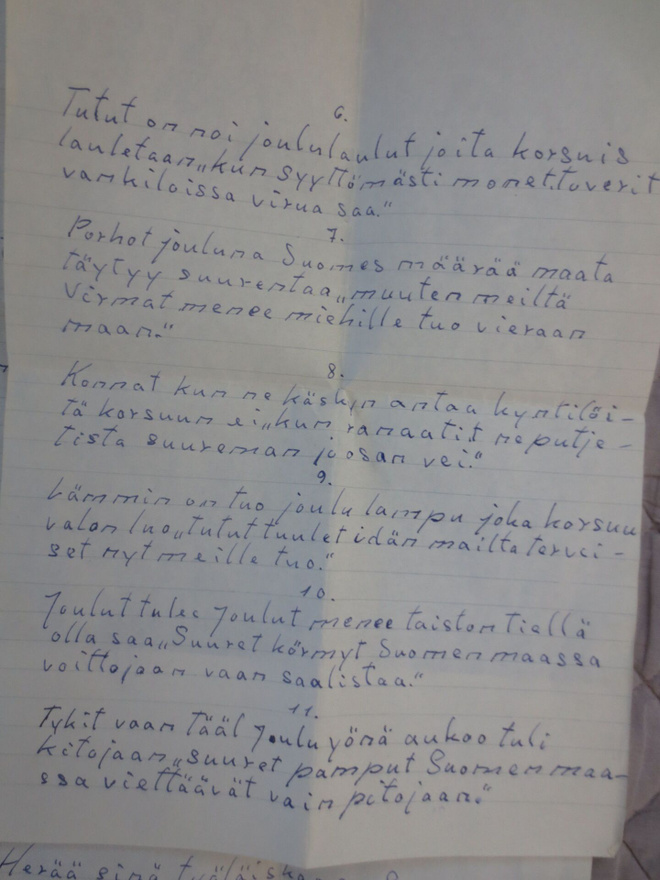 6.
Tutut on noi joululaulut joita korsuis
lauletaan„kun syyttömästi monet.toverit
vankiloissa virua saa."
7.
Porhot jouluna Suomes määrää maata
täytyy suurentaa„muuten meiltä
Virmat menee miehille tuo vieraan
maan."
8.
Konnat kun ne käskyn antaa kyntilöi-
tä korsuun ei„kun ramaatit ne putje-
tista suureman joosan vei."
9.
Lämmin on tuo joulu lampu joka korsuu
valon luo„tututtuulet idän mailta tervei-
set nyt meille tuo."
10.
Joulut tulee Joulut menee taiston tiellä
olla saa„Suuret körmyt Suomen maassa
voittojaan vaan saalistaa."
11.
Tykit vaan tääl Joulu yönä aukoo tuli
kitojaan„suuret pamput Suomen maa-
ssa viettäävät vain pitojaan."
Herää sinä